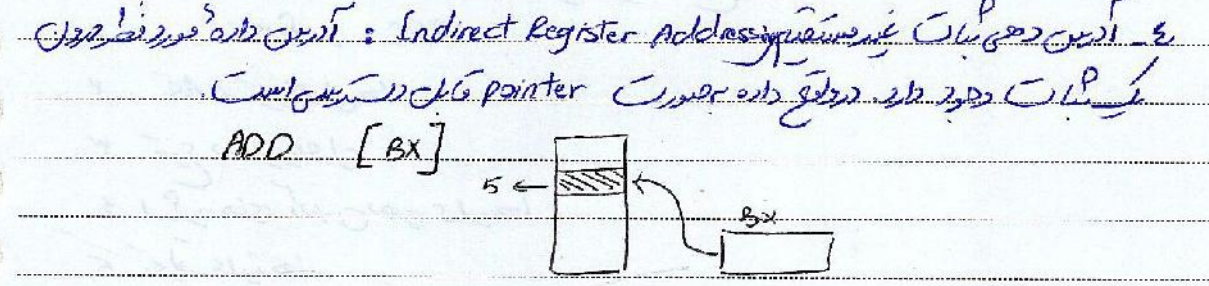 ٤- آدرس دهی ثبات غیر مستقیم Indirect Register Addressing : آدرس داده مورد نظر درون
یک ثبات وجود دارد. در واقع داده بصورت pointer قابل دسترسی است.
ADD [BX]
5 ←
BX